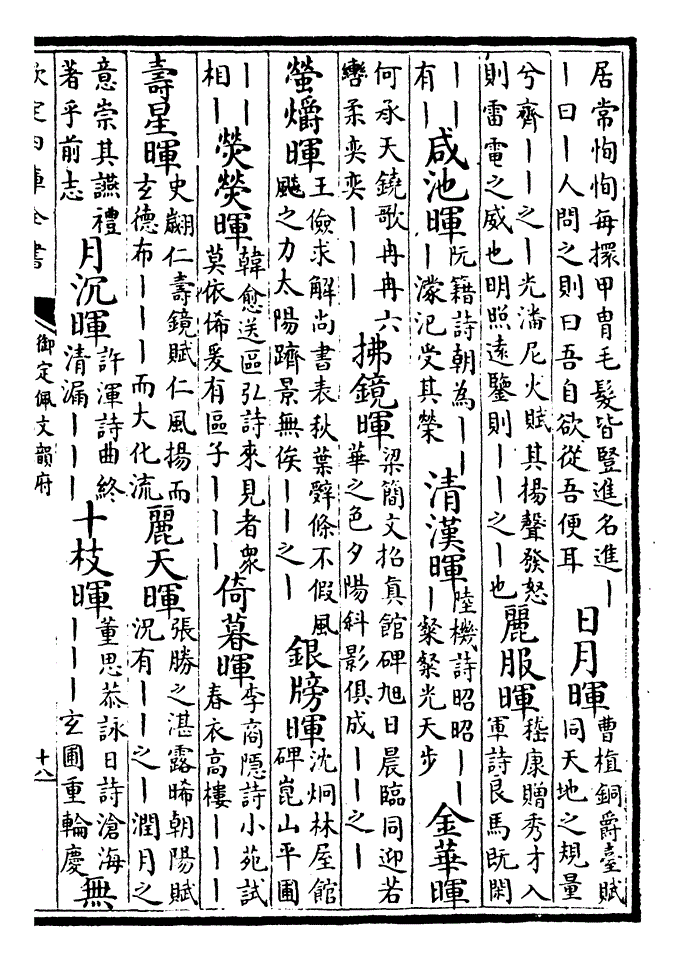 居常恂恂每擐甲冑毛髮皆豎進名進丨
丨曰丨人問之則曰吾自欲從吾便耳
日月暉
曹植銅爵臺賦
同天地之規量
兮齊丨丨之丨光潘尼火賦其揚聲發怒
則雷電之威也明照遠鑒則丨丨之丨也
麗服暉
嵇康贈秀才入
軍詩良馬既閑
丨丨
有丨
咸池暉
阮籍詩朝為丨丨
丨濛汜受其榮
清漢暉
陸機詩昭昭丨丨
丨粲粲光天步
金華暉
何承天鐃歌冉冉六
轡柔奕奕丨丨丨
拂鏡暉
梁簡文招真館碑旭日晨臨同迎若
華之色夕陽斜影俱成丨丨之丨
螢爝暉
王儉求解尚書表秋葉辭條不假風
飈之力太陽躋景無俟丨丨之丨
銀牓暉
沈炯林屋館
碑崑山平圃
丨丨
相丨
熒熒暉
韓愈送區弘詩來見者衆
莫依俙爰有區子丨丨丨
倚暮暉
李商隱詩小苑試
春衣高樓丨丨丨
壽星暉
史翽仁壽鏡賦仁風揚而
玄德布丨丨丨而大化流
麗天暉
張勝之湛露晞朝陽賦
況有丨丨之丨潤月之
意崇其讌禮
著乎前志
月沉暉
許渾詩曲終
清漏丨丨丨
十枝暉
董思恭詠日詩滄海
丨丨丨玄圃重輪慶
無
欽定四庫全書
御定佩文韻府
十八